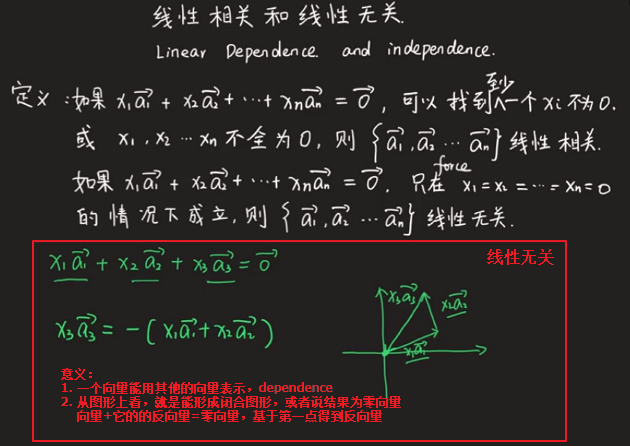 线性相关和线性无关.
Linear Dependence. and independence.
定义:如果 x₁a₁⃗ + x₂a₂⃗ + ⋯ + xₙaₙ⃗ = 0⃗, 可以找到至少一个 xi 不为0.
或 x₁, x₂ ⋯ xₙ 不全为0, 则 {a₁⃗, a₂⃗ ⋯ aₙ⃗} 线性相关.
如果 x₁a₁⃗ + x₂a₂⃗ + ⋯ + xₙaₙ⃗ = 0⃗. 只在 force x₁ = x₂ = ⋯ = xₙ = 0
的情况下成立, 则 {a₁⃗, a₂⃗ ⋯ aₙ⃗} 线性无关.
线性无关
x₁a₁⃗ + x₂a₂⃗ + x₃a₃⃗ = 0⃗
x₃a₃⃗ = -(x₁a₁⃗ + x₂a₂⃗)
x₃a₃⃗
x₂a₂⃗
x₁a₁⃗
意义:
1. 一个向量能用其他的向量表示，dependence
2. 从图形上看，就是能形成闭合图形，或者说结果为零向量
向量+它的的反向量=零向量，基于第一点得到反向量